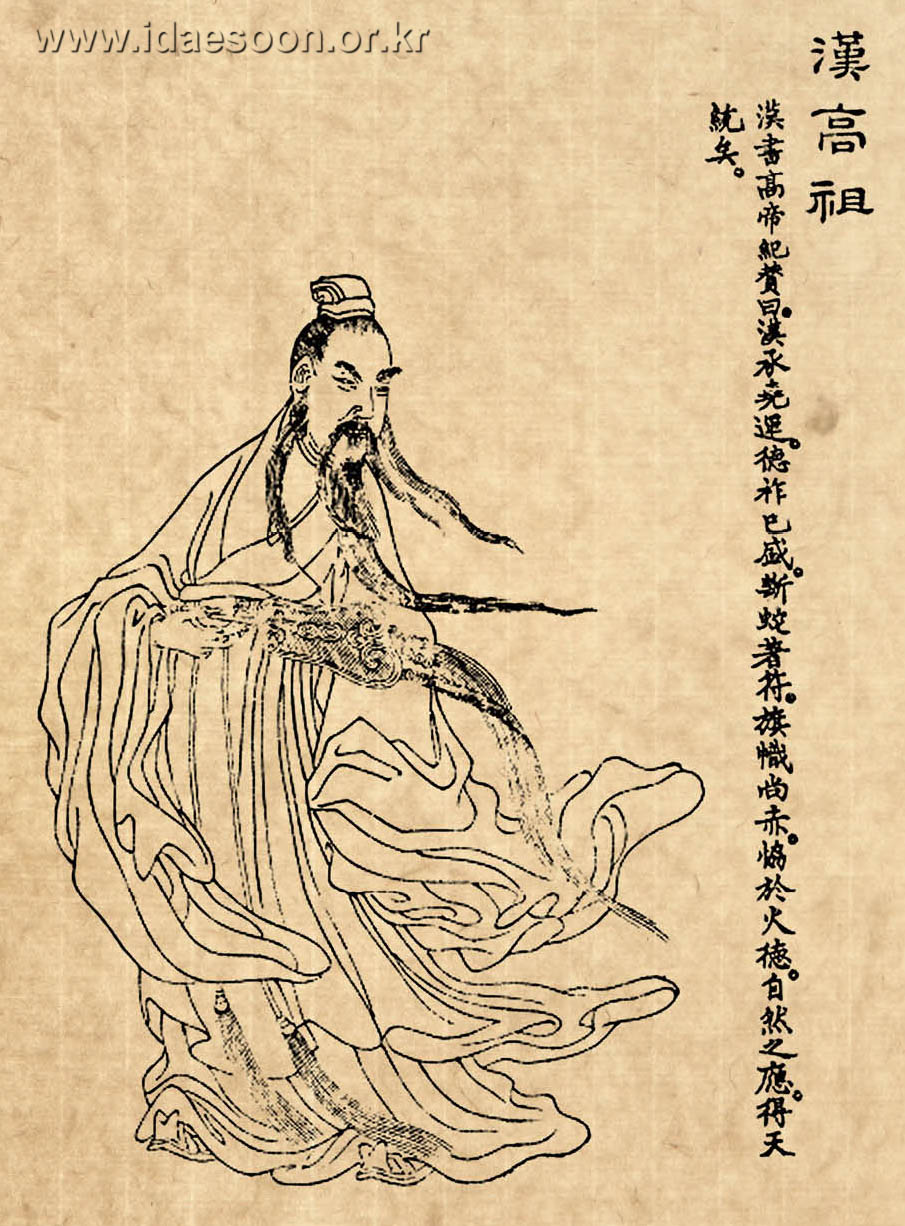 www.idaesoon.or.kr
漢高祖
漢書高帝紀贊曰。漢承堯運。德祚已盛。斷蛇著符。旗幟尚赤。恊於火德。自然之應。得天
統矣。